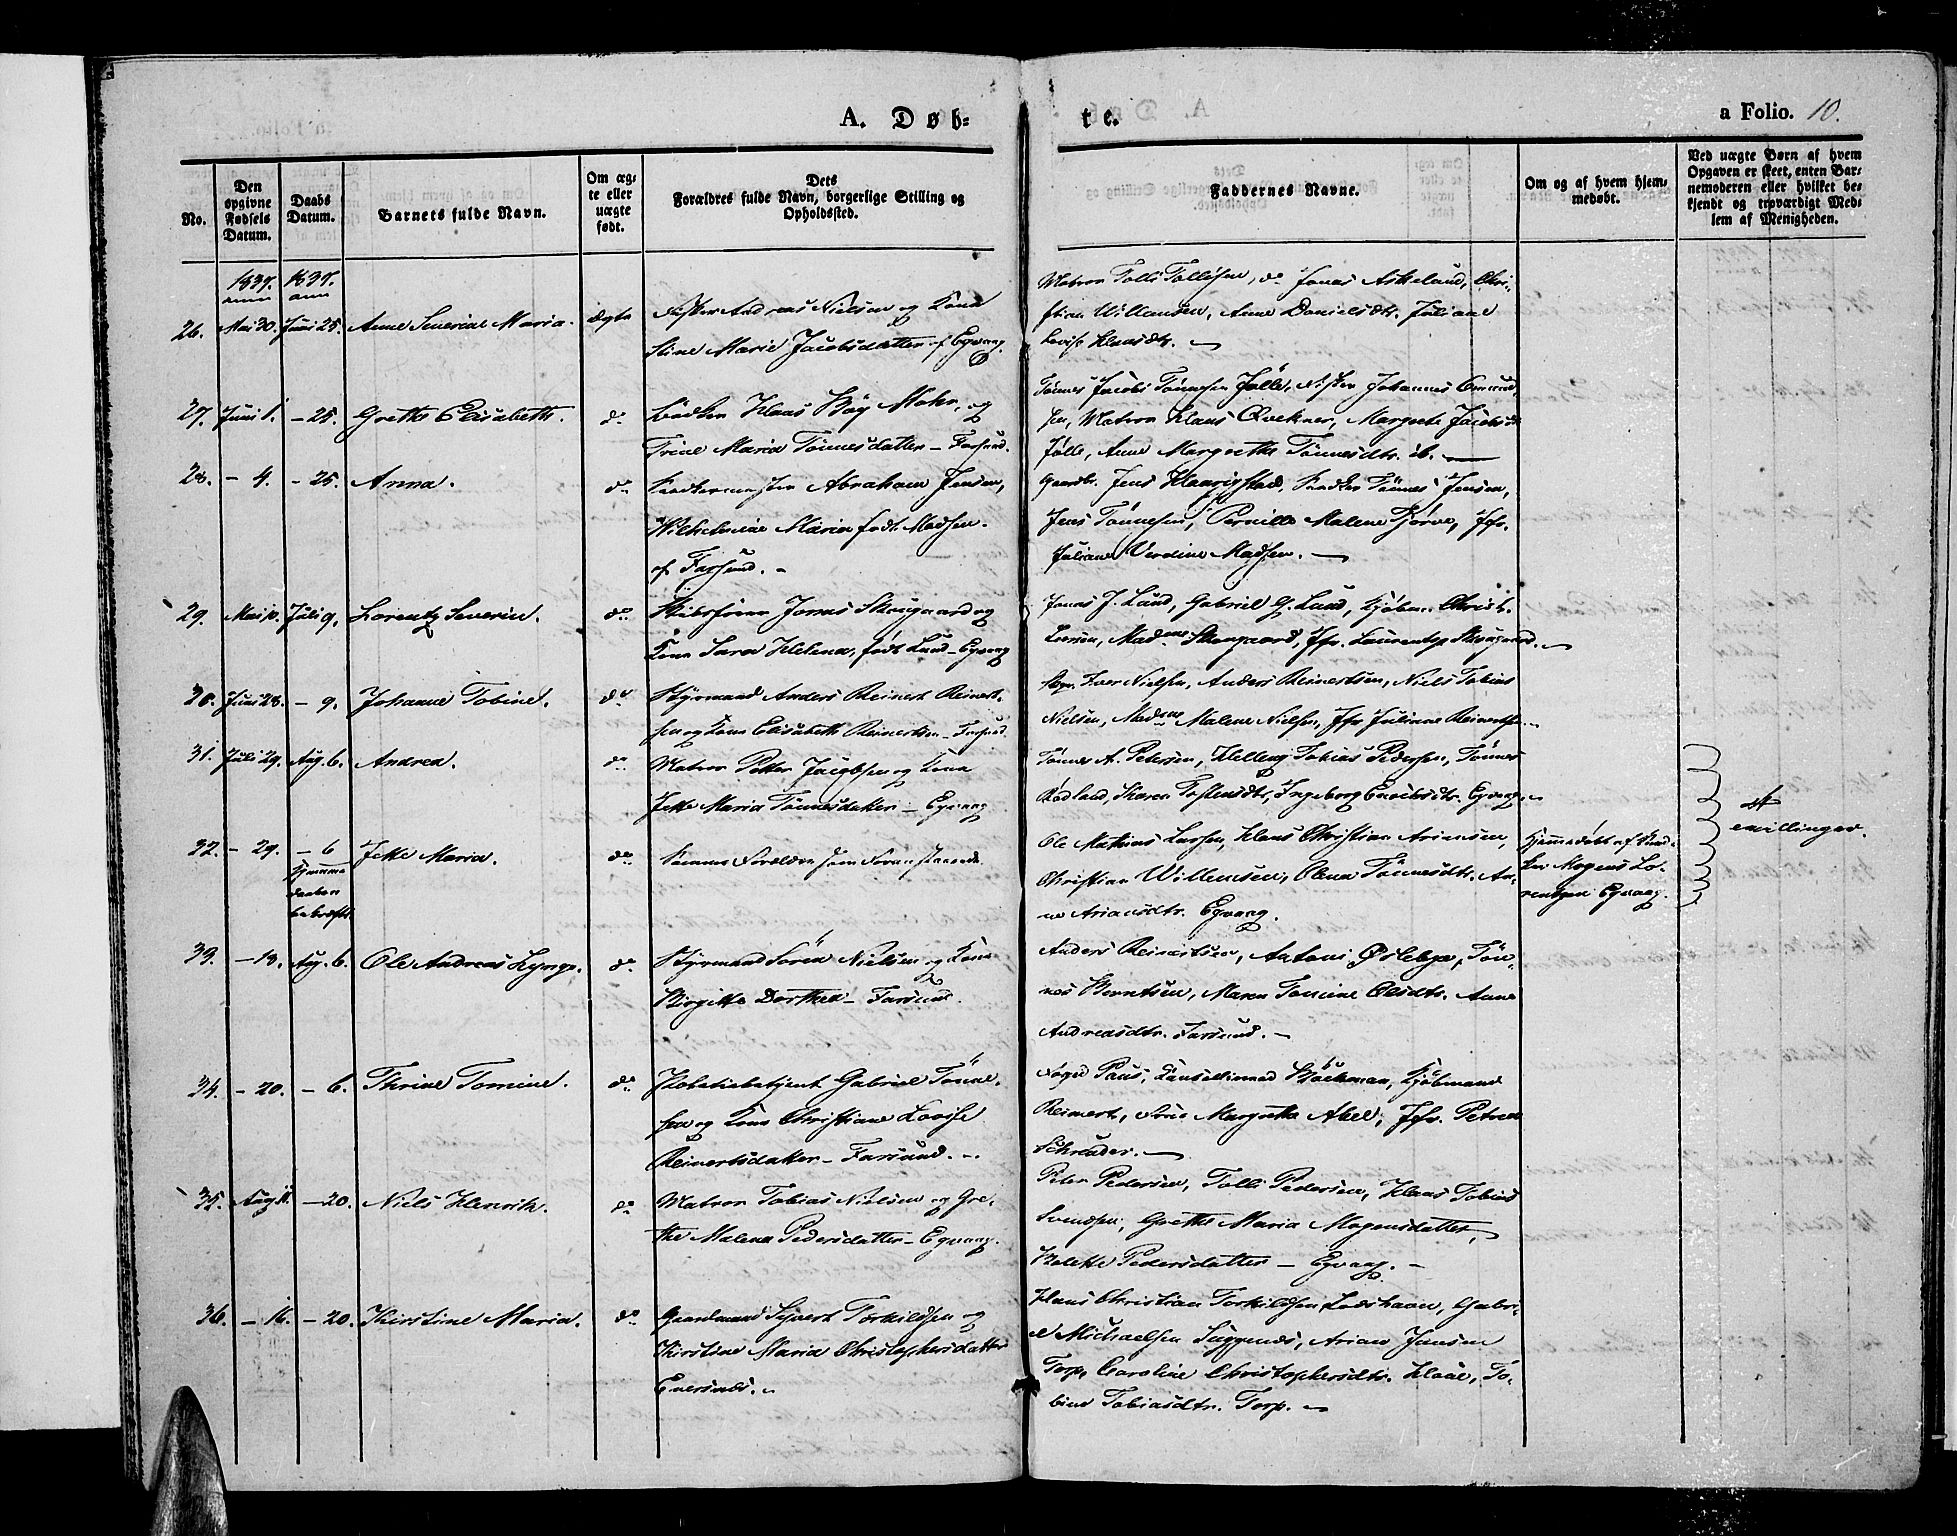 A. Døb-
te.
a Folio. 10.
No.
Den opgivne Fødsels Datum.
Daabs Datum.
Barnets fulde Navn.
Om ægte eller uægte født.
Dets Forældres fulde Navn, borgerlige Stilling og Opholdssted.
Faddernes Navne.
Om og af hvem hjemmedøbt.
Ved uægte Børn af hvem Opgaven er skeet, enten Barnemoderen eller hvilket bekjendt og troværdigt Medlem af Menigheden.
1837. 1837.
26. Mai 30. Juni 25. Anne Severine Maria. Ægte
Andreas Nielsen og Kone
Stine Marie Jacobsdatter af Egvaag.
Matros Tolli Tollisen, do Jonas Askeland, Chri-
stian Willumsen, Anne Danielsdtr. Juliane
Lovise Klausdtr.
27. Juni 1. - 25. Grethe Elisabeth. do
Bødker Klaas Bøy Mohr, og
Trine Maria Tønnesdatter - Farsund.
Tønnes Jacobs Tønnesen Jølle, Johannes
Matros Klaus Margrete Jacobsdr
Jølle, Anne Margrethe Tønnesdtr. ib.
28. - 4. - 25. Anna. do
Abraham Jensen,
Wilhelmine Maria født Madsen.
af Farsund.
Gaardbr. Jens Tønnes Jensen,
Jens Tønnesen, Pernille Malene Tjørve, Jfr.
Juliane Verdine Madsen.
29. Mai 10. Juli 9. Lorentz Severin. do
Skibsfører Jonas Skougaard og
Kone Sara Helena, født Lund - Egvaag
Jonas J. Lund, Gabriel G. Lund, Kjøbm. Christ.
Iversen, Madme Skougaard, Jfr. Laurentze Skougaard.
30. Juni 28. - 9. Johanne Tobine. do
Styrmand Anders Reinert Reinert-
sen og Kone Elisabeth Reinertsen - Farsund.
Iver Nielsen, Anders Reinertsen, Niels Tobias
Nielsen, Madme Malene Nielsen, Jfr Juliane Reinertsen.
31. Juli 29. Aug. 6. Andrea. do
Matros Petter Jacobsen og Kone
Jette Maria Tønnesdatter - Egvaag
Tønnes A. Petersen, Helleug Tobias Pedersen, Tønnes
Rødland, Karen Ingeborg Egvaag.
et
32. - 29. - 6 Jette Maria. do
Hjemme
daaben
bekræft.
Samme Forældre som Foranstaaende.
Ole Mathias Larsen, Klaus Christian Ariansen,
Christian Willumsen, Olena Tønnesdtr. An-
ne Ariansdtr. Egvaag.
Hjemmedøbt af
Mogens Lo-
rentzen Egvaag.
33. - 13. Aug. 6. Ole Andreas Lynge. do
Styrmand Søren Nielsen og Kone
Birgitte Dorthea - Farsund.
Anders Reinertsen, Antoni Østebye, Tøn-
nes Berntsen, Maren Tomine Olsdtr. Anne
Andreasdtr. Farsund.
34. - 20. - 6. Thrine Tomine. do
Politiebetjent Gabriel Tønne-
sen og Kone Christiane Lovise
Reinertsdatter - Farsund.
Foged Paus, Kjøbmand
Reinert, Margrethe Abel, Jfr. Petrea
Schrøder.
35. Aug. 11. - 20. Niels Henrik. do
Matros Tobias Nielsen og Gre-
the Malena Pedersdatter - Egvaag.
Peter Pedersen, Tolli Pedersen, Klaas Tobias
Svendsen, Grethe Maria Mogensdatter,
Bolette Pedersdatter - Egvaag.
36. - 16. - 20. Kirstine Maria. do
Gaardmand Syvert Torkildsen og
Kirstine Maria Christophersdatter
Eversnes.
Hans Christian Torkildsen Lodshavn, Gabri-
el Michaelsen Arian Jansen
Torp, Caroline Christophersdtr. To-
bine Tobiasdtr. Torp.